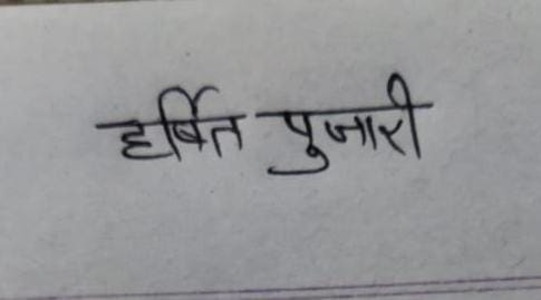 हर्षित पुजारी